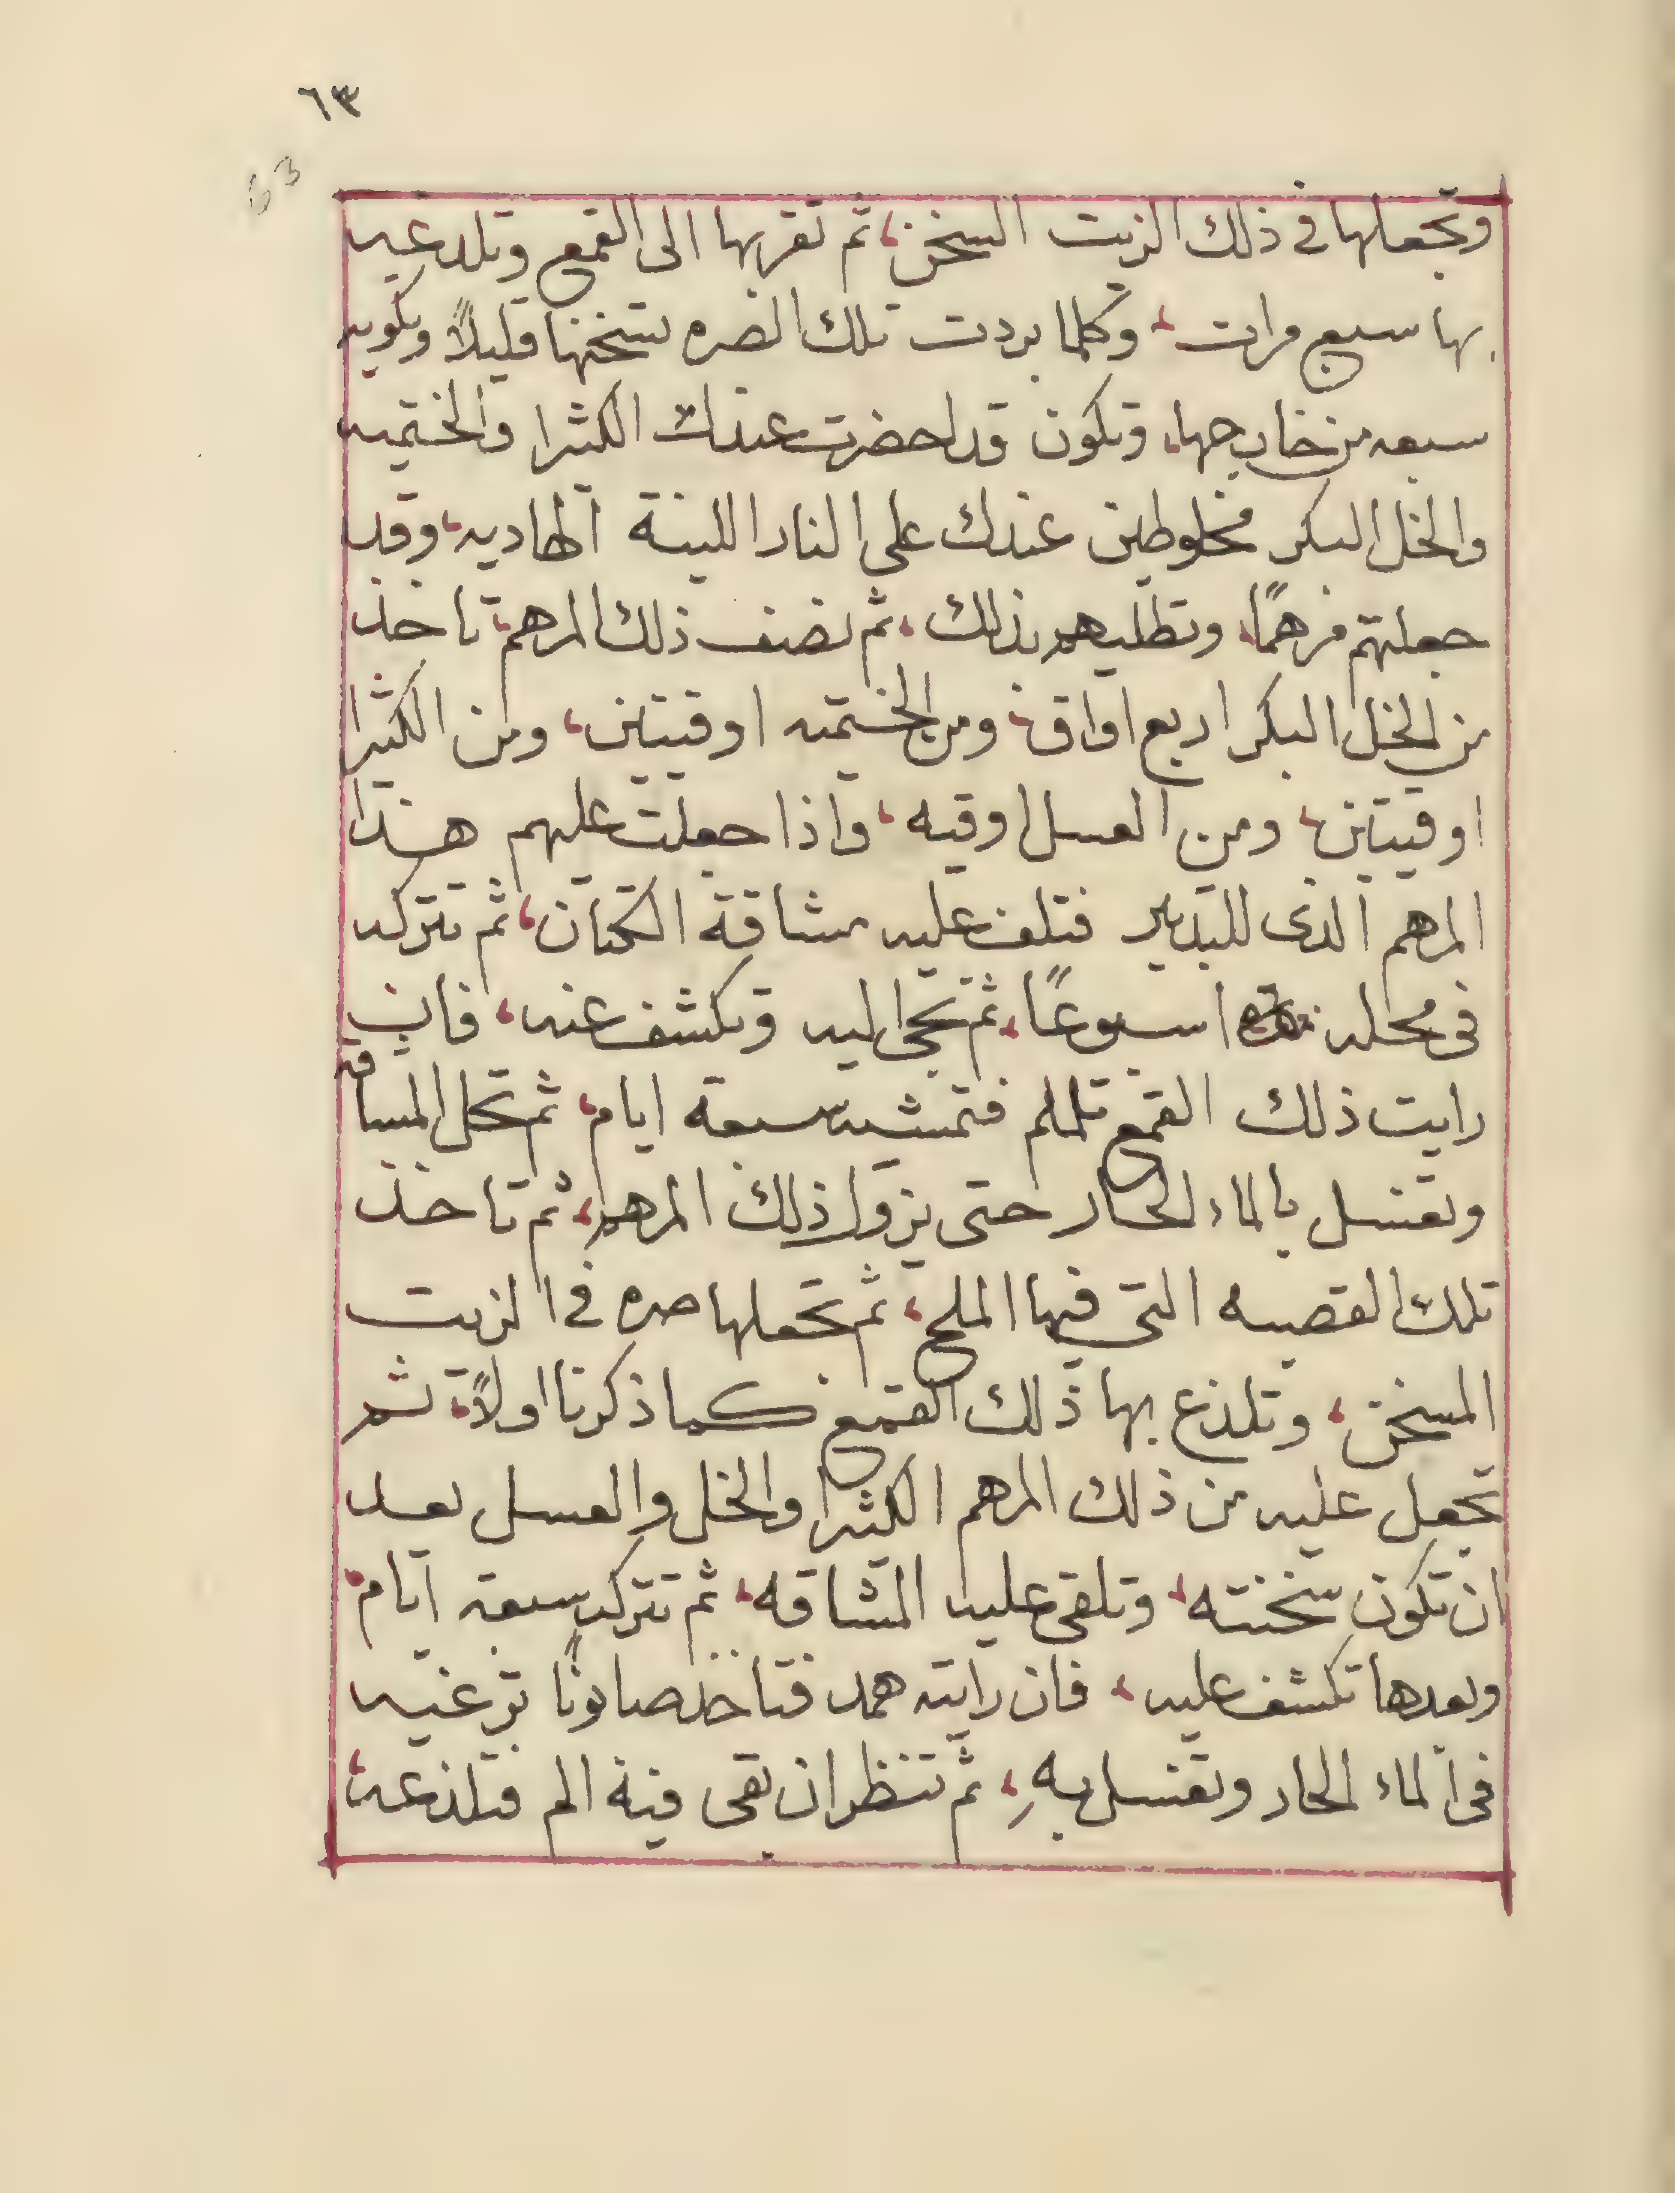 ٦٣
63
وتجعلها في ذلك الزيت السخن، ثم تقربها الى القمع وتلدعيه
بها سبع مرات، وكلما بردت تلك الصره تسخنها قليلاً وتكويه
سبعه من خارجها، وتكون قد احضرت عندك الكثرا والختميه
والخل البكر مخلوطين عندك على النار اللينة الهاديه، وقد
جعلتهم مرهمًا، وتطليهم بذلك، ثم نصف ذلك المرهم، تاخذ
من الخل البكر اربع اواق، ومن الختميه اوقيتين، ومن الكثيرا
اوقيتين، ومن العسل اوقيه، واذا جعلت عليهم هذا
المرهم الذى للتدبير فتلف عليه مشاقة الكتان، ثم تتركه
فى محله اسبوعًا، ثم تجى اليه وتكشف عنه، فان
رايت ذلك القمع تلملم فتمشيه سبعة ايام، ثم تحل المساقه
وتغسل بالماء الحار حتى يزول ذلك المرهم، ثم تاخذ
تلك القصبه التى فيها الملح، ثم تجعلها صره في الزيت
المسخن، وتلذع بها ذلك القمع كما ذكرنا اولاً، ثم
تجعل عليه من ذلك المرهم الكثرا والخل والعسل بعد
ان تكون سخنته، وتلقى عليه المشاقه، ثم تتركه سبعة ايام،
وبعدها تكشف عليه، فان رايته همد فتاخذ صابونًا ترغيه
فى الماء الحار وتغسل به، ثم تنظر ان بقى فيه الم فتلذعه،